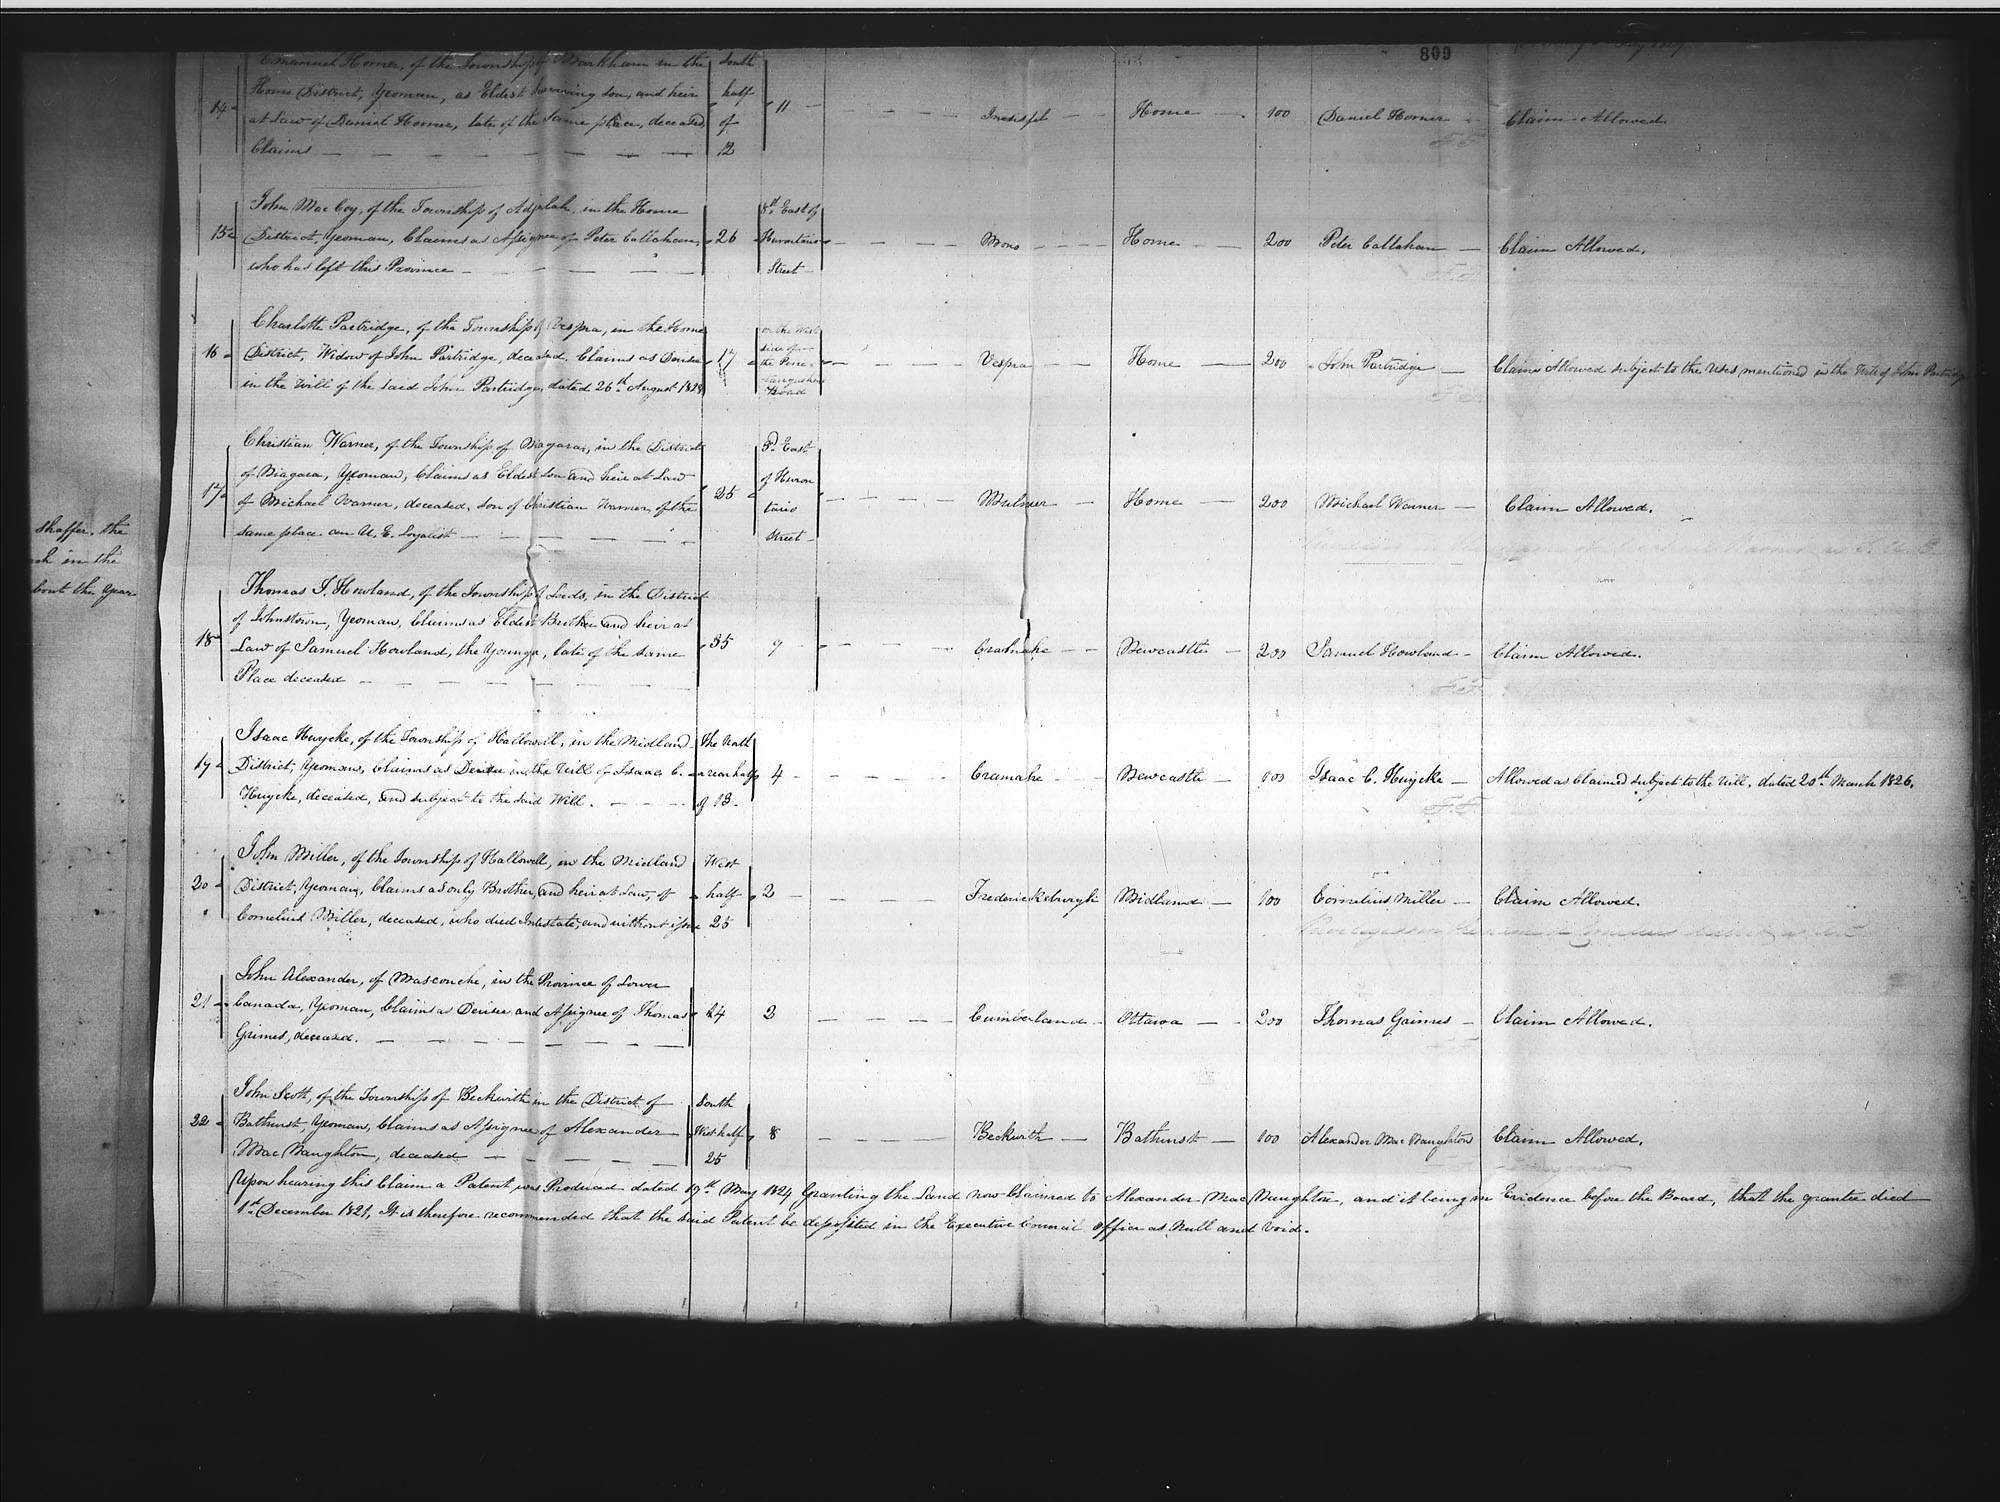 809
Emanuel Horner, of the Township of Markham in the
Home District, Yeoman, as Eldest surviving son, and heir
at Law of Daniel Horner, late of the same place, deceased,
Claims
14
South
half
of
12
11
Innisfil
Home
100
Daniel Horner
Claim Allowed.
John MacCoy, of the Township of Adjalah, in the Home
District, Yeoman, Claims as Assignee of Peter Callahan,
who has left this Province
15
26
8th East of
Hurontario
Street
Mono
Home
200
Peter Callahan
Claim Allowed.
Charlotte Partridge, of the Township of Vespra, in the Home
District, Widow of John Partridge, deceased, Claims as Devisee
in the Will of the said John Partridge, dated 26th August 1828
16
17
on the West
side of
the Pene-
tanguishene
Road
Vespra
Home
200
John Partridge
Claim Allowed subject to the Uses mentioned in the Will of John Partridge
Christian Warner, of the Township of Niagara, in the District
of Niagara, Yeoman, Claims as Eldest son and heir at Law
of Michael Warner, deceased, son of Christian Warner, of the
same place an U. E. Loyalist
17
25
3d East
of Huron
tario
Street
Mulmer
Home
200
Michael Warner
Claim Allowed.
Shaffer, the
in the
bout the year
Thomas J. Howland, of the Township of Leeds, in the District
of Johnstown, Yeoman, Claims as Eldest Brother and heir at
Law of Samuel Howland, the Younger, late of the same
Place deceased
18
35
9
Cramahe
Newcastle
200
Samuel Howland
Claim Allowed.
Isaac Huycke, of the Township of Hallowell, in the Midland
District, Yeoman, Claims as Devisee in the Will of Isaac C.
Huycke, deceased, and subject to the said Will.
19
The North
or rear half
of 13.
4
Cramahe
Newcastle
100
Isaac C. Huycke
Allowed as Claimed subject to the Will, dated 20th March 1826.
John Miller, of the Township of Hallowell, in the Midland
District, Yeoman, Claims as only Brother, and heir at Law, of
Cornelius Miller, deceased, who died Intestate, and without issue
20
West
half
25
2
Fredericksburgh
Midland
100
Cornelius Miller
Claim Allowed.
John Alexander, of Masconche, in the Province of Lower
Canada, Yeoman, Claims as Devisee and Assignee of Thomas
Grimes, deceased.
21
24
2
Cumberland
Ottawa
200
Thomas Grimes
Claim Allowed.
John Scott, of the Township of Beckwith in the District of
Bathurst, Yeoman, Claims as Assignee of Alexander
MacNaughton, deceased
22
South
West half
25
8
Beckwith
Bathurst
100
Alexander MacNaughton
Claim Allowed.
Upon hearing this Claim a Patent was Produced dated 19th May 1824 Granting the Land now Claimed to Alexander MacNaughton, and it being in Evidence before the Board, that the grantee died
1st December 1821, It is therefore recommended that the said Patent be deposited in the Executive Council Office as Null and Void.